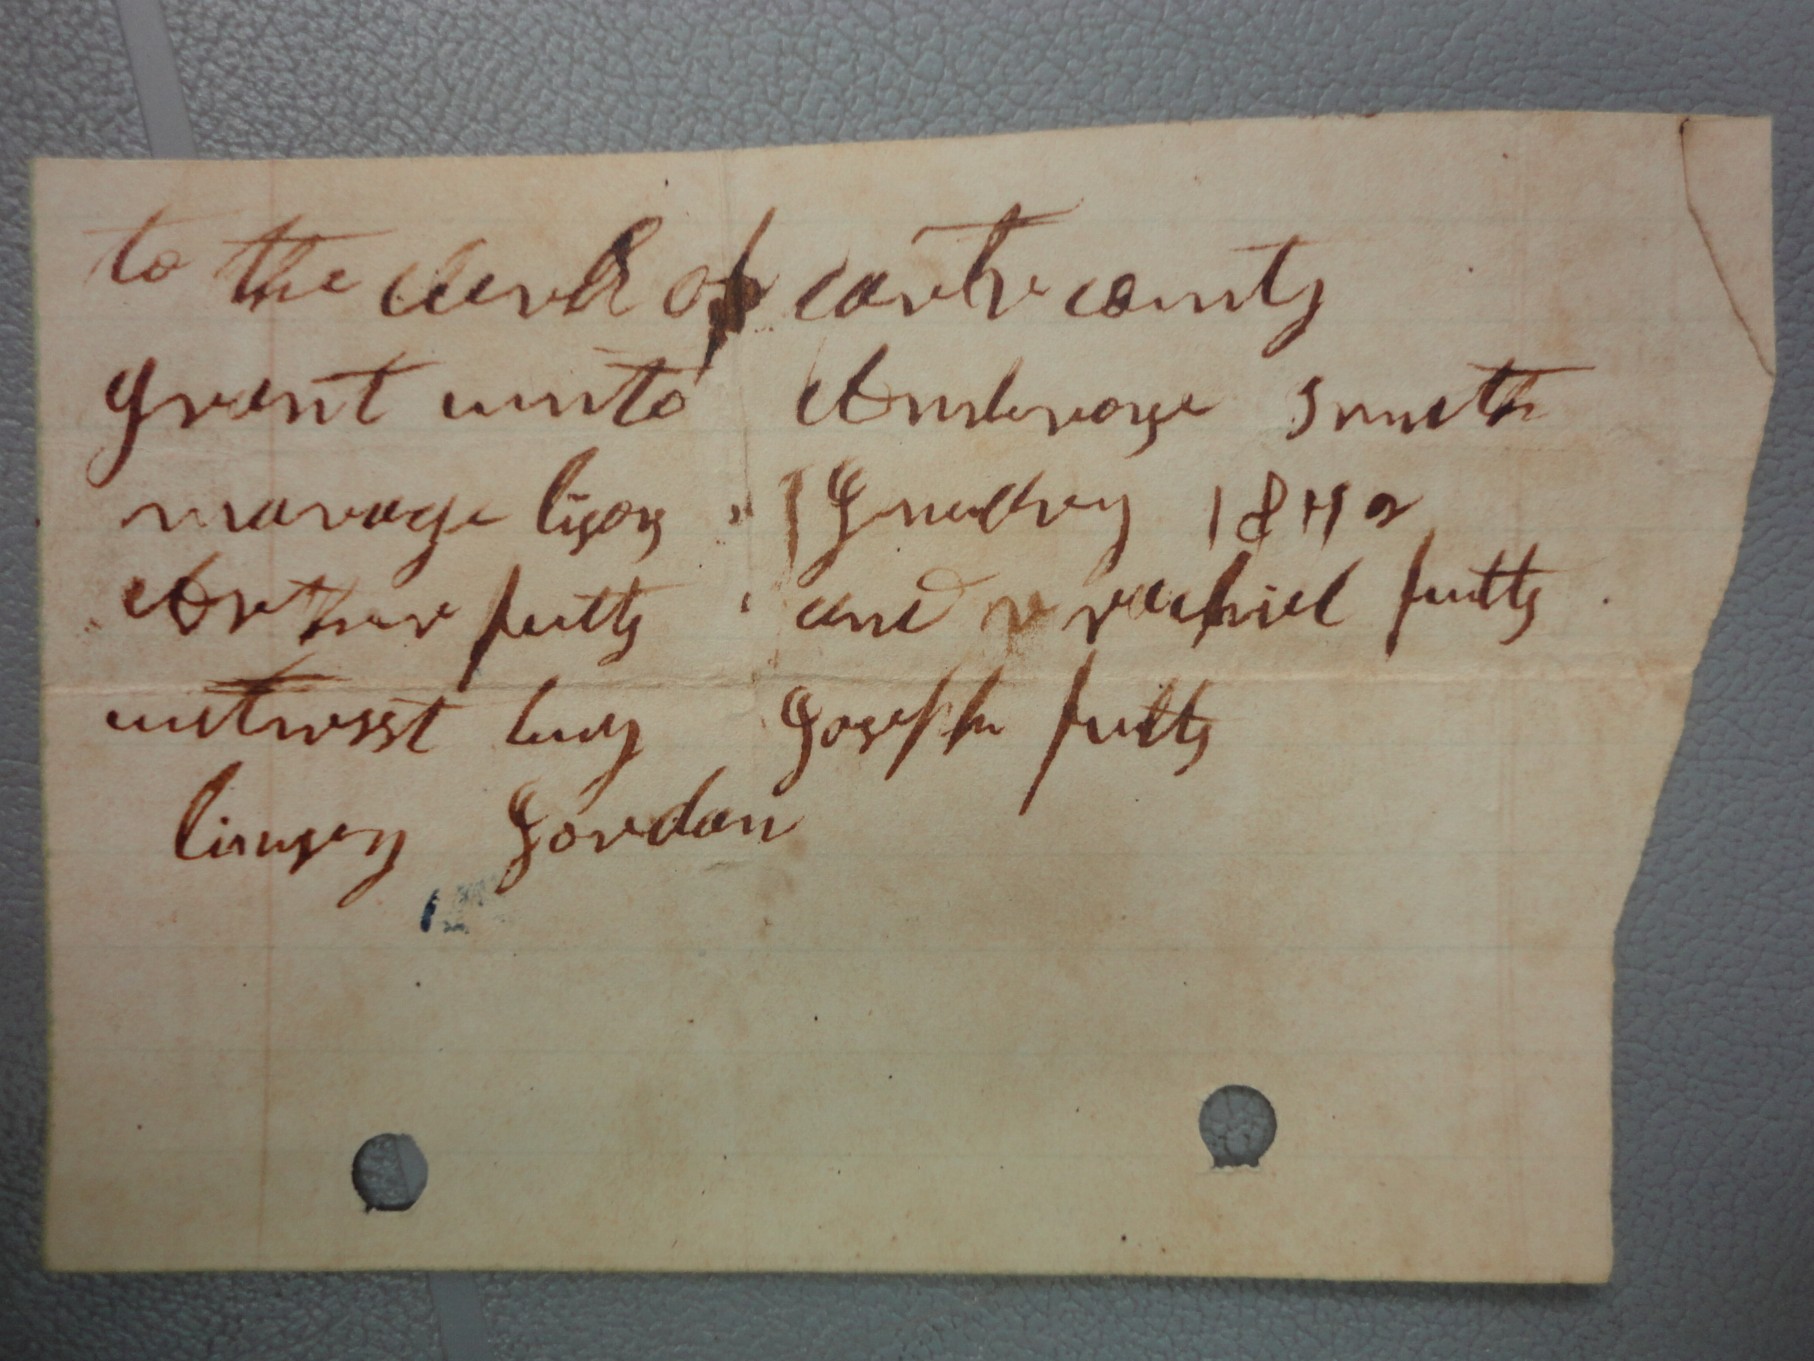 to the clerk of carter county
grant unto Anderage Smith
marage lisons Jenuary 1842
Arthur putty and rachiel putty
witnesst Joseph putty
linsey Jordan